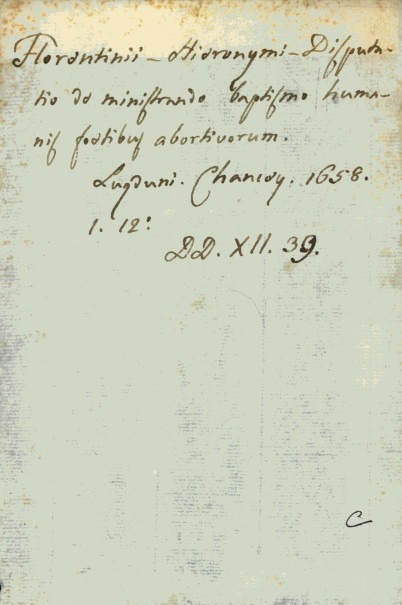 Florentinii - Hieronymi - Disputa-
tio de ministrando baptismo huma-
nis foetibus abortivorum.
Lugduni. Chancey. 1658.
1. 12:
DD. XII. 39.
C